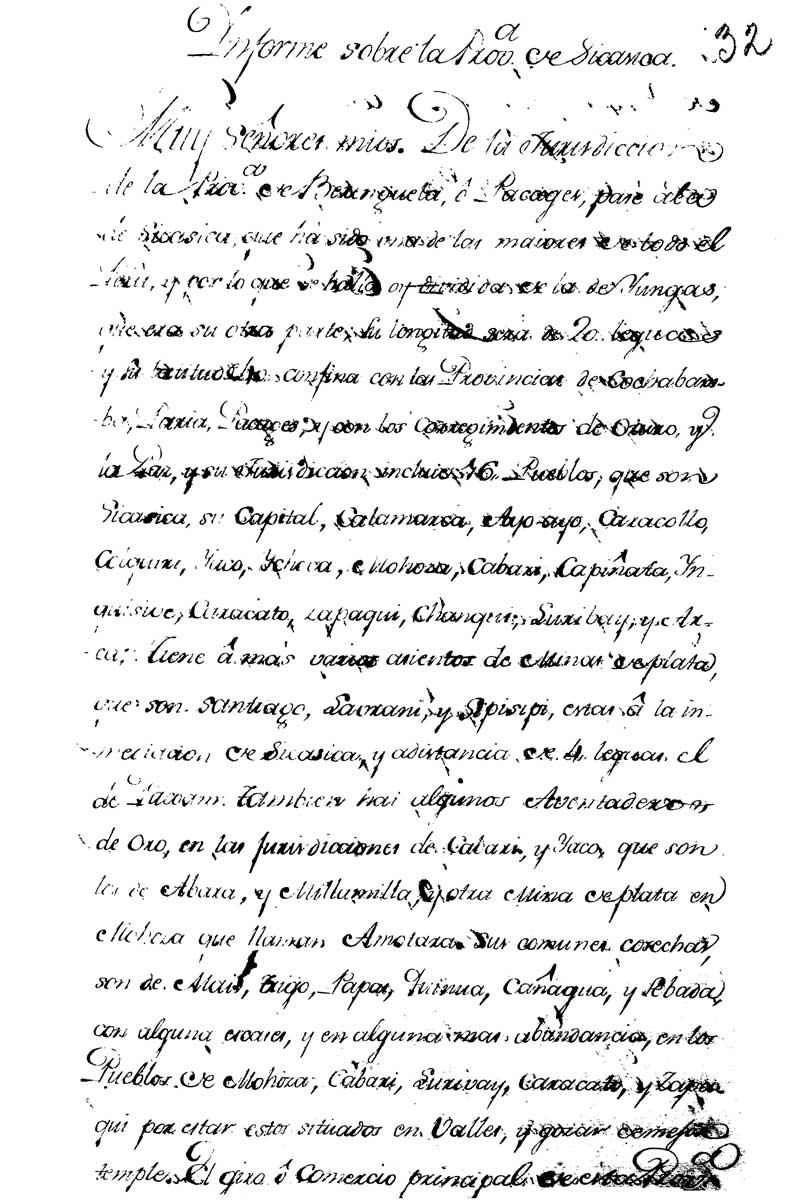 Informe sobre la Prov.ª de Sicasica. 32
Muy Señores mios. De la Jurisdiccion
de la Prov.ª de Berenguela, ô Pacages, pasè à la
de Sicasica, que hà sido una de las maiores de todo el
Perù, y por lo que se halla oy dividida en la de Yungas,
que era su otra parte; su longitud serà de 20. leguas
y su latitud confina con las Provincias de Cochabam-
ba, Paria, Pacages, y con los Corregimientos de Oruro, y
la Paz, y su Jurisdicion incluie 16. Pueblos, que son
Sicasica, su Capital, Calamarca, Ayo ayo, Caracollo,
Colquiri, Yaco, Ychoca, Mohoza, Cabari, Capiñata, Yn-
quisive, Caracato, Zapaqui, Chanqui, Luribay, y Ar-
ca; tiene â mas varios asientos de Minas de plata,
que son Santiago, Laurani, y Sipisipi, estas â la in-
mediacion de Sicasica, y a distancia de 4. leguas el
de Tambien hai algunos Aventaderos
de Oro, en las Jurisdicciones de Cabari, y Yaco, que son
los de Abara, y Millumilla, y otra Mina de plata en
Mohoza que llaman Amotara. Sus comunes cosechas,
son de Mais, trigo, Papas, Quinua, Cañagua, y Sebada,
con alguna escases, y en alguna mas abundancia, en los
Pueblos de Mohoza, Cabari, Lurivay, Caracato, y Zapa-
qui por estar estos situados en Valles, y gozar de mejor
temple. El giro ô Comercio principal de esta Prov.ª